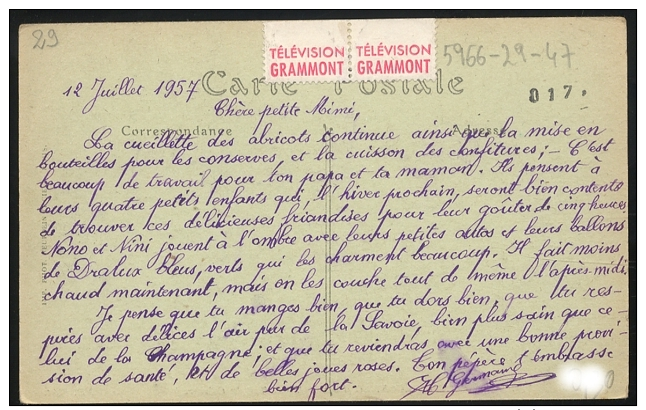 29
TÉLÉVISION GRAMMONT
TÉLÉVISION GRAMMONT
5966-29-47
12 Juillet 1957
Carte Postale
017.
Chère petite Mimi,
Correspondance
Adresse
La cueillette des abricots continue ainsi que la mise en
bouteilles pour les conserves, et la cuisson des confitures; - C'est
beaucoup de travail pour ton papa et ta maman. Ils pensent à
leurs quatre petits enfants qui, l'hiver prochain, seront bien contents
de trouver ces délicieuses friandises pour leur goûter de cinq heures.
Nono et Nini jouent à l'ombre avec leurs petites autos et leurs ballons
de Dralux bleus, verts qui les charment beaucoup. Il fait moins
chaud maintenant, mais on les couche tout de même l'après-midi.
Je pense que tu manges bien, que tu dors bien, que tu res-
pires avec délices l'air pur de la Savoie, bien plus sain que ce-
lui de la Champagne; et que tu reviendras avec une bonne provi-
sion de santé, et de belles joues roses. Ton pépère t'embrasse
bien fort.